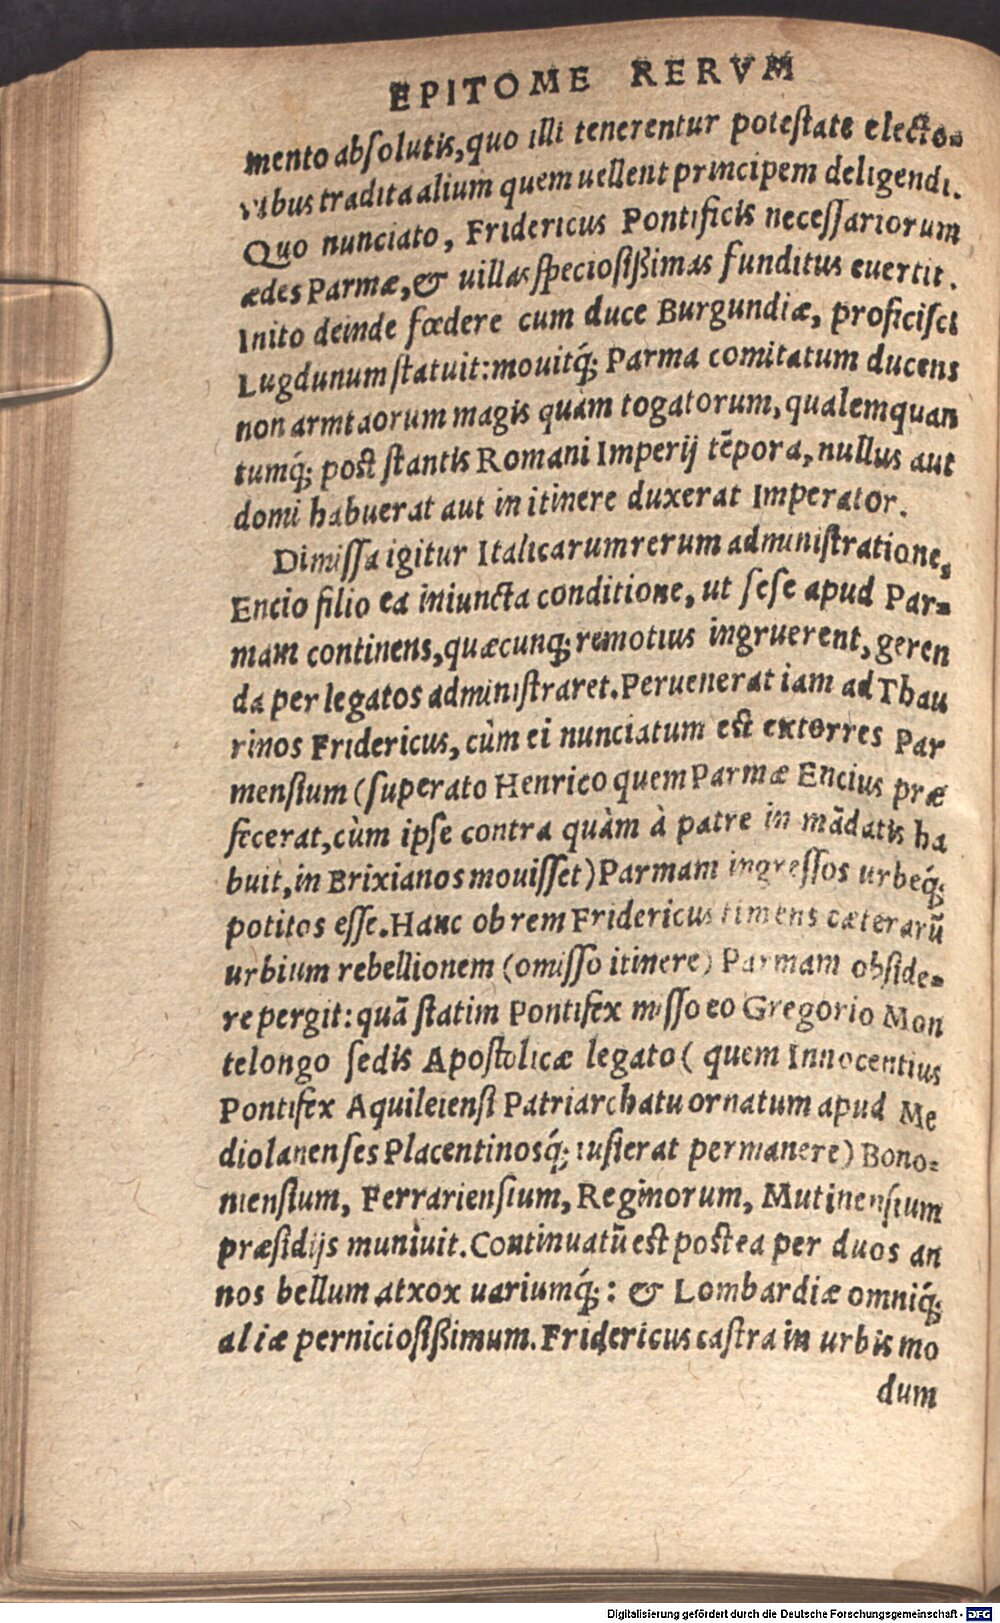 EPITOME RERVM
mento absolutis, quo illi tenerentur potestate electo-
ribus tradita alium quem uellent principem deligendi.
Quo nunciato, Fridericus Pontificis necessariorum
ædes Parmæ, & uillas speciosißimas funditus euertit.
Inito deinde fœdere cum duce Burgundiæ, proficisci
Lugdunum statuit: mouitq́; Parma comitatum ducens
non armtaorum magis quàm togatorum, qualemquan
tumq́; post stantis Romani Imperij tẽpora, nullus aut
domi habuerat aut in itinere duxerat Imperator.
Dimissa igitur Italicarum rerum administratione,
Encio filio ea iniuncta conditione, ut sese apud Par-
mam continens, quæcunq; remotius ingruerent, geren
da per legatos administraret. Peruenerat iam ad Thau
rinos Fridericus, cùm ei nunciatum est extorres Par
mensium (superato Henrico quem Parmæ Encius præ
fecerat, cùm ipse contra quàm à patre in mãdatis ha
buit, in Brixianos mouisset) Parmam ingressos urbeq́;
potitos esse. Hanc ob rem Fridericus timens cæterarũ
urbium rebellionem (omisso itinere) Parmam obside-
re pergit: quã statim Pontifex misso eo Gregorio Mon
telongo sedis Apostolicæ legato (quem Innocentius
Pontifex Aquileiensi Patriarchatu ornatum apud Me
diolanenses Placentinosq́; iusserat permanere) Bono-
niensium, Ferrariensium, Reginorum, Mutinensium
præsidijs muniuit. Continuatũ est postea per duos an
nos bellum atxox uariumq́;: & Lombardiæ omniq́;
aliæ perniciosißimum. Fridericus castra in urbis mo
dum
Digitalisierung gefördert durch die Deutsche Forschungsgemeinschaft - DFG